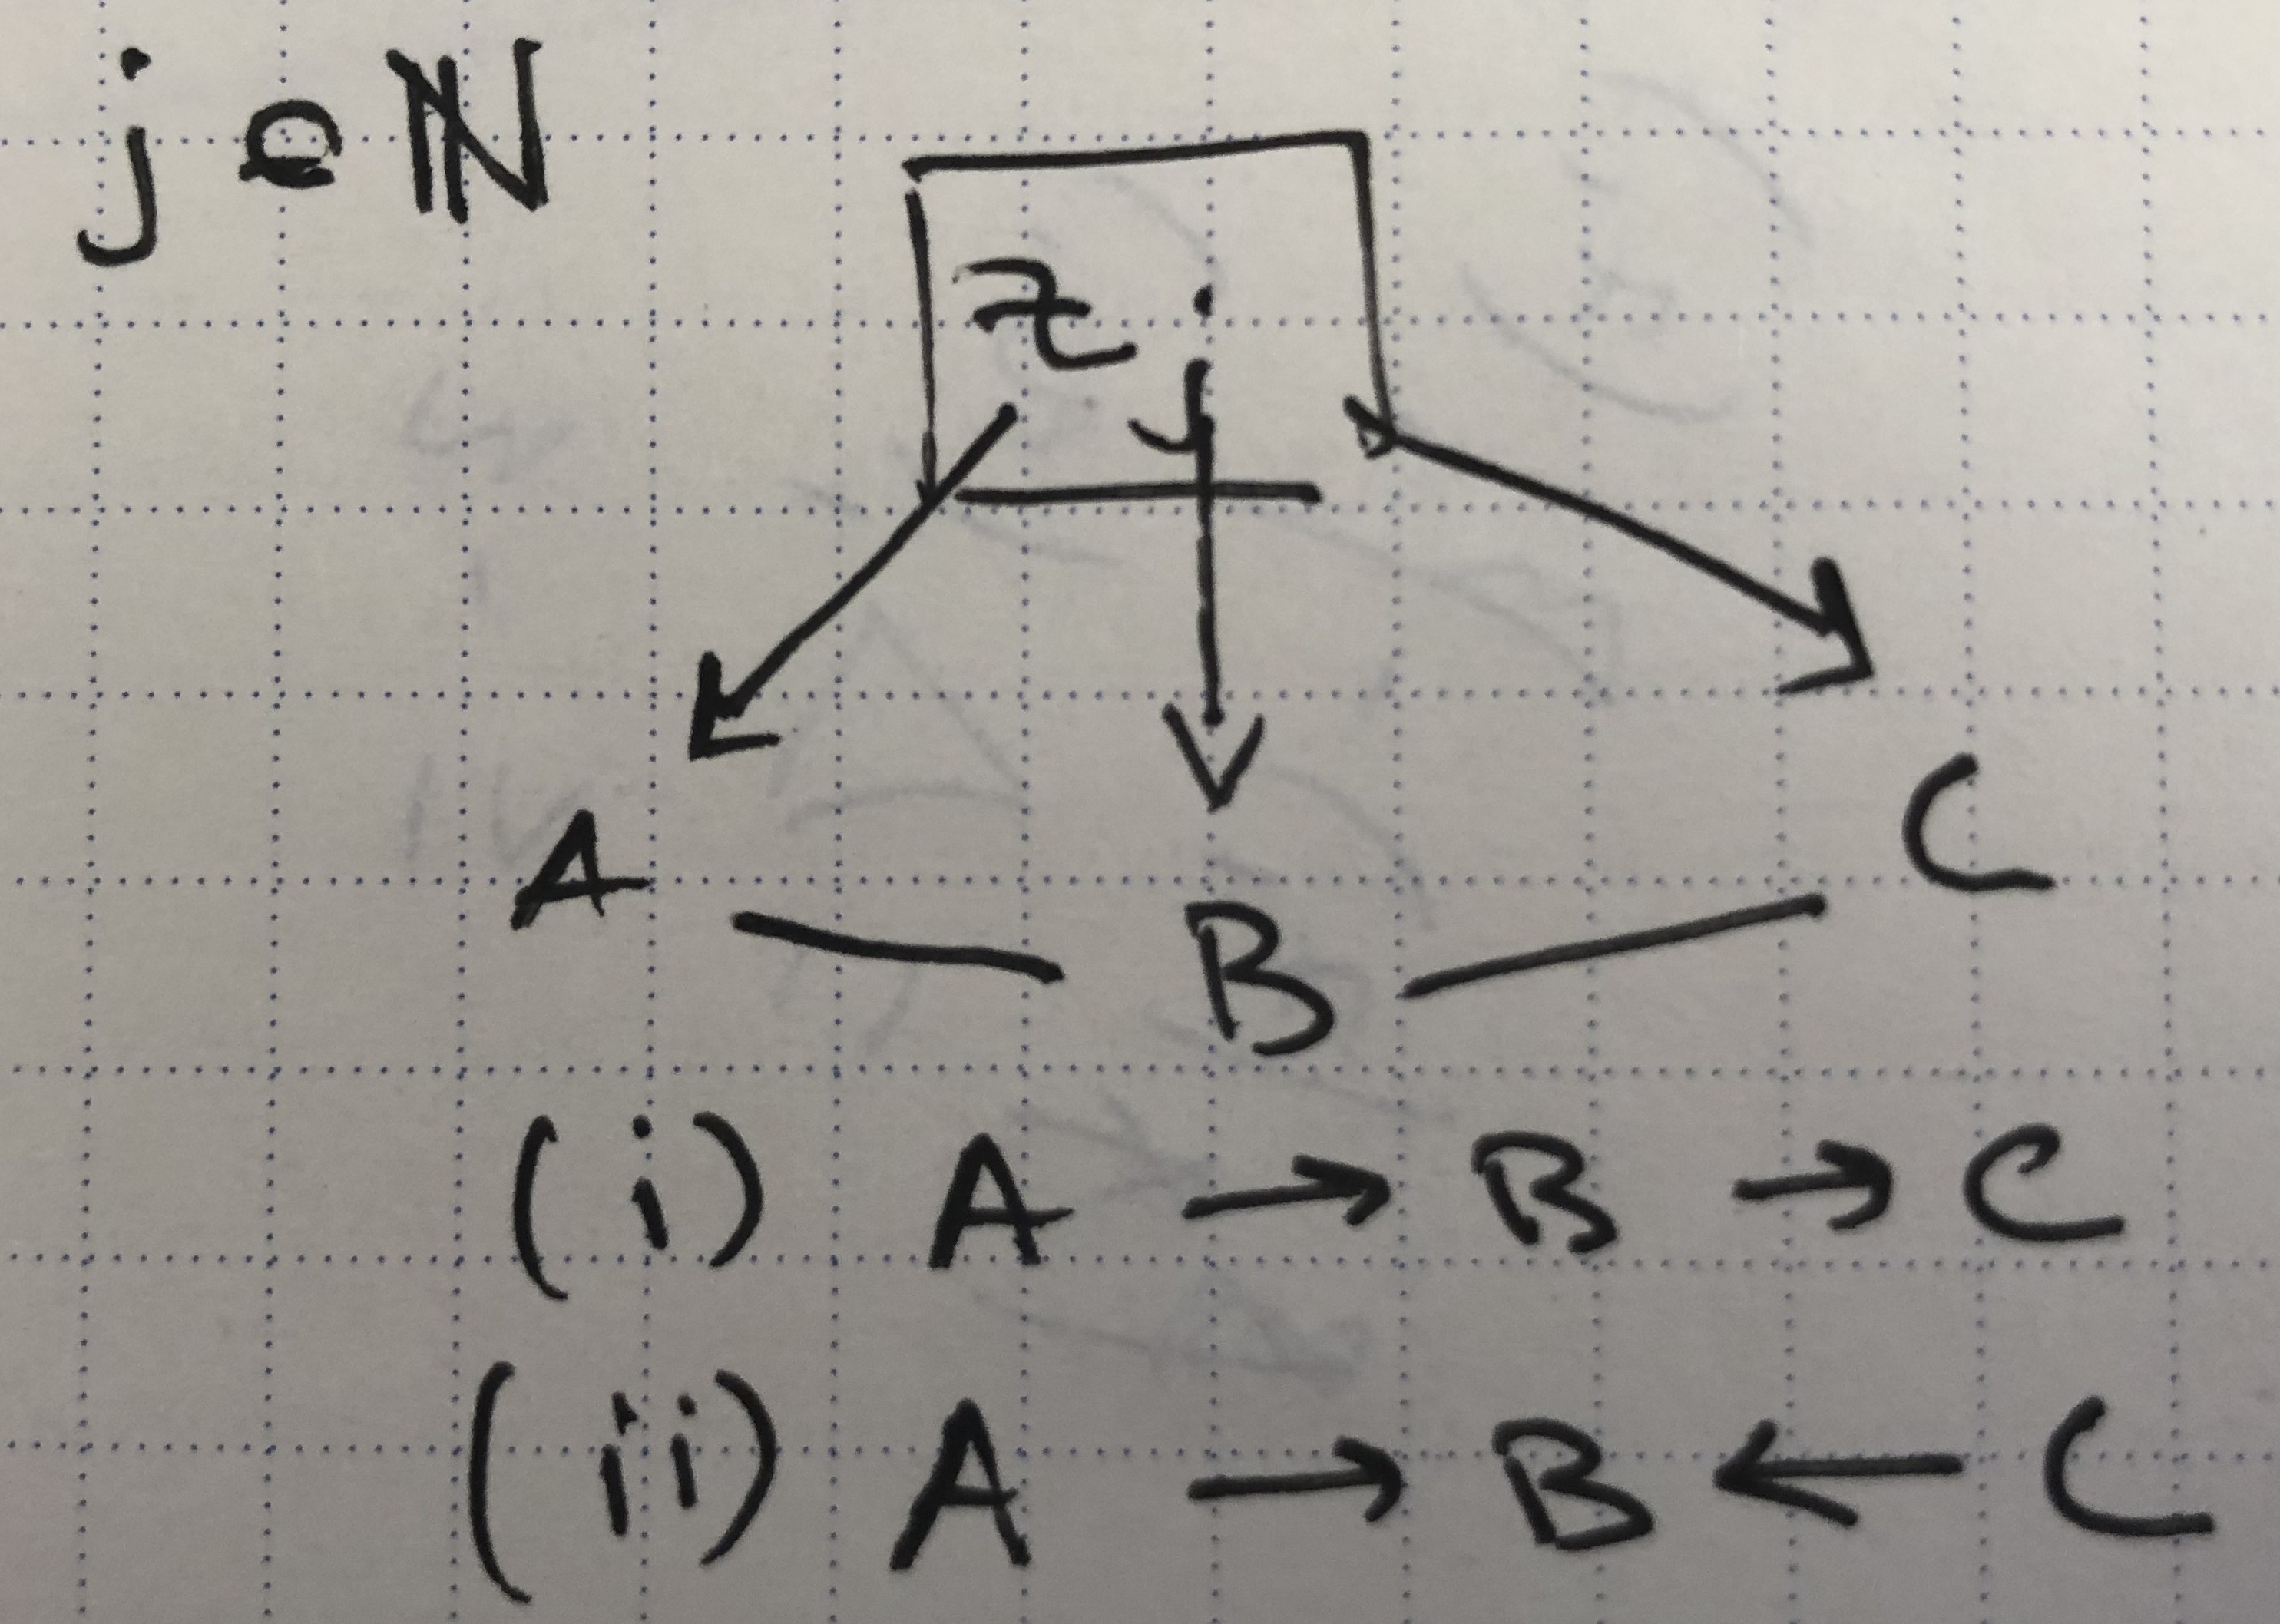 j ∈ ℕ
Z j
A B C
(i) A → B → C
(ii) A → B ← C